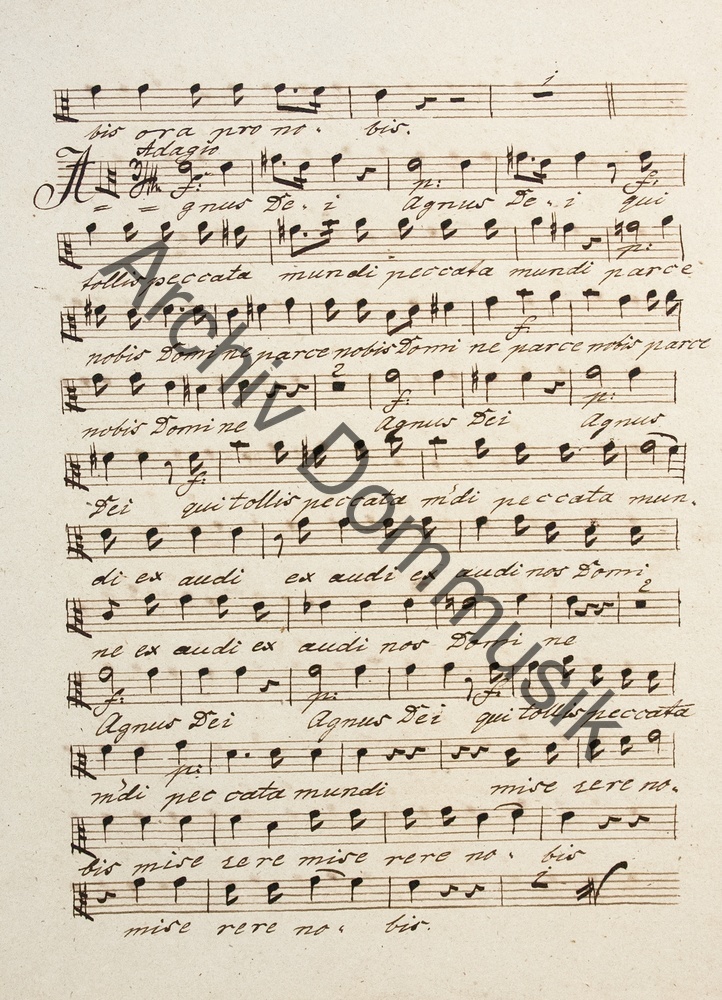 bis ora pro no - bis.
Adagio
A = = gnus De - i Agnus De - i qui
tollis peccata mundi peccata mundi parce
nobis Domine parce nobis Domi ne parce nobis parce
nobis Domine Agnus Dei Agnus
Dei qui tollis peccata m̄di peccata mun-
di ex audi ex audi ex audi nos Domi
ne ex audi ex audi nos Domi ne
Agnus Dei Agnus Dei qui tollis peccata
m̄di pec cata mundi mise rere no-
bis mise re re mise rere no - bis
mise rere no - bis.
Archiv Dommusik